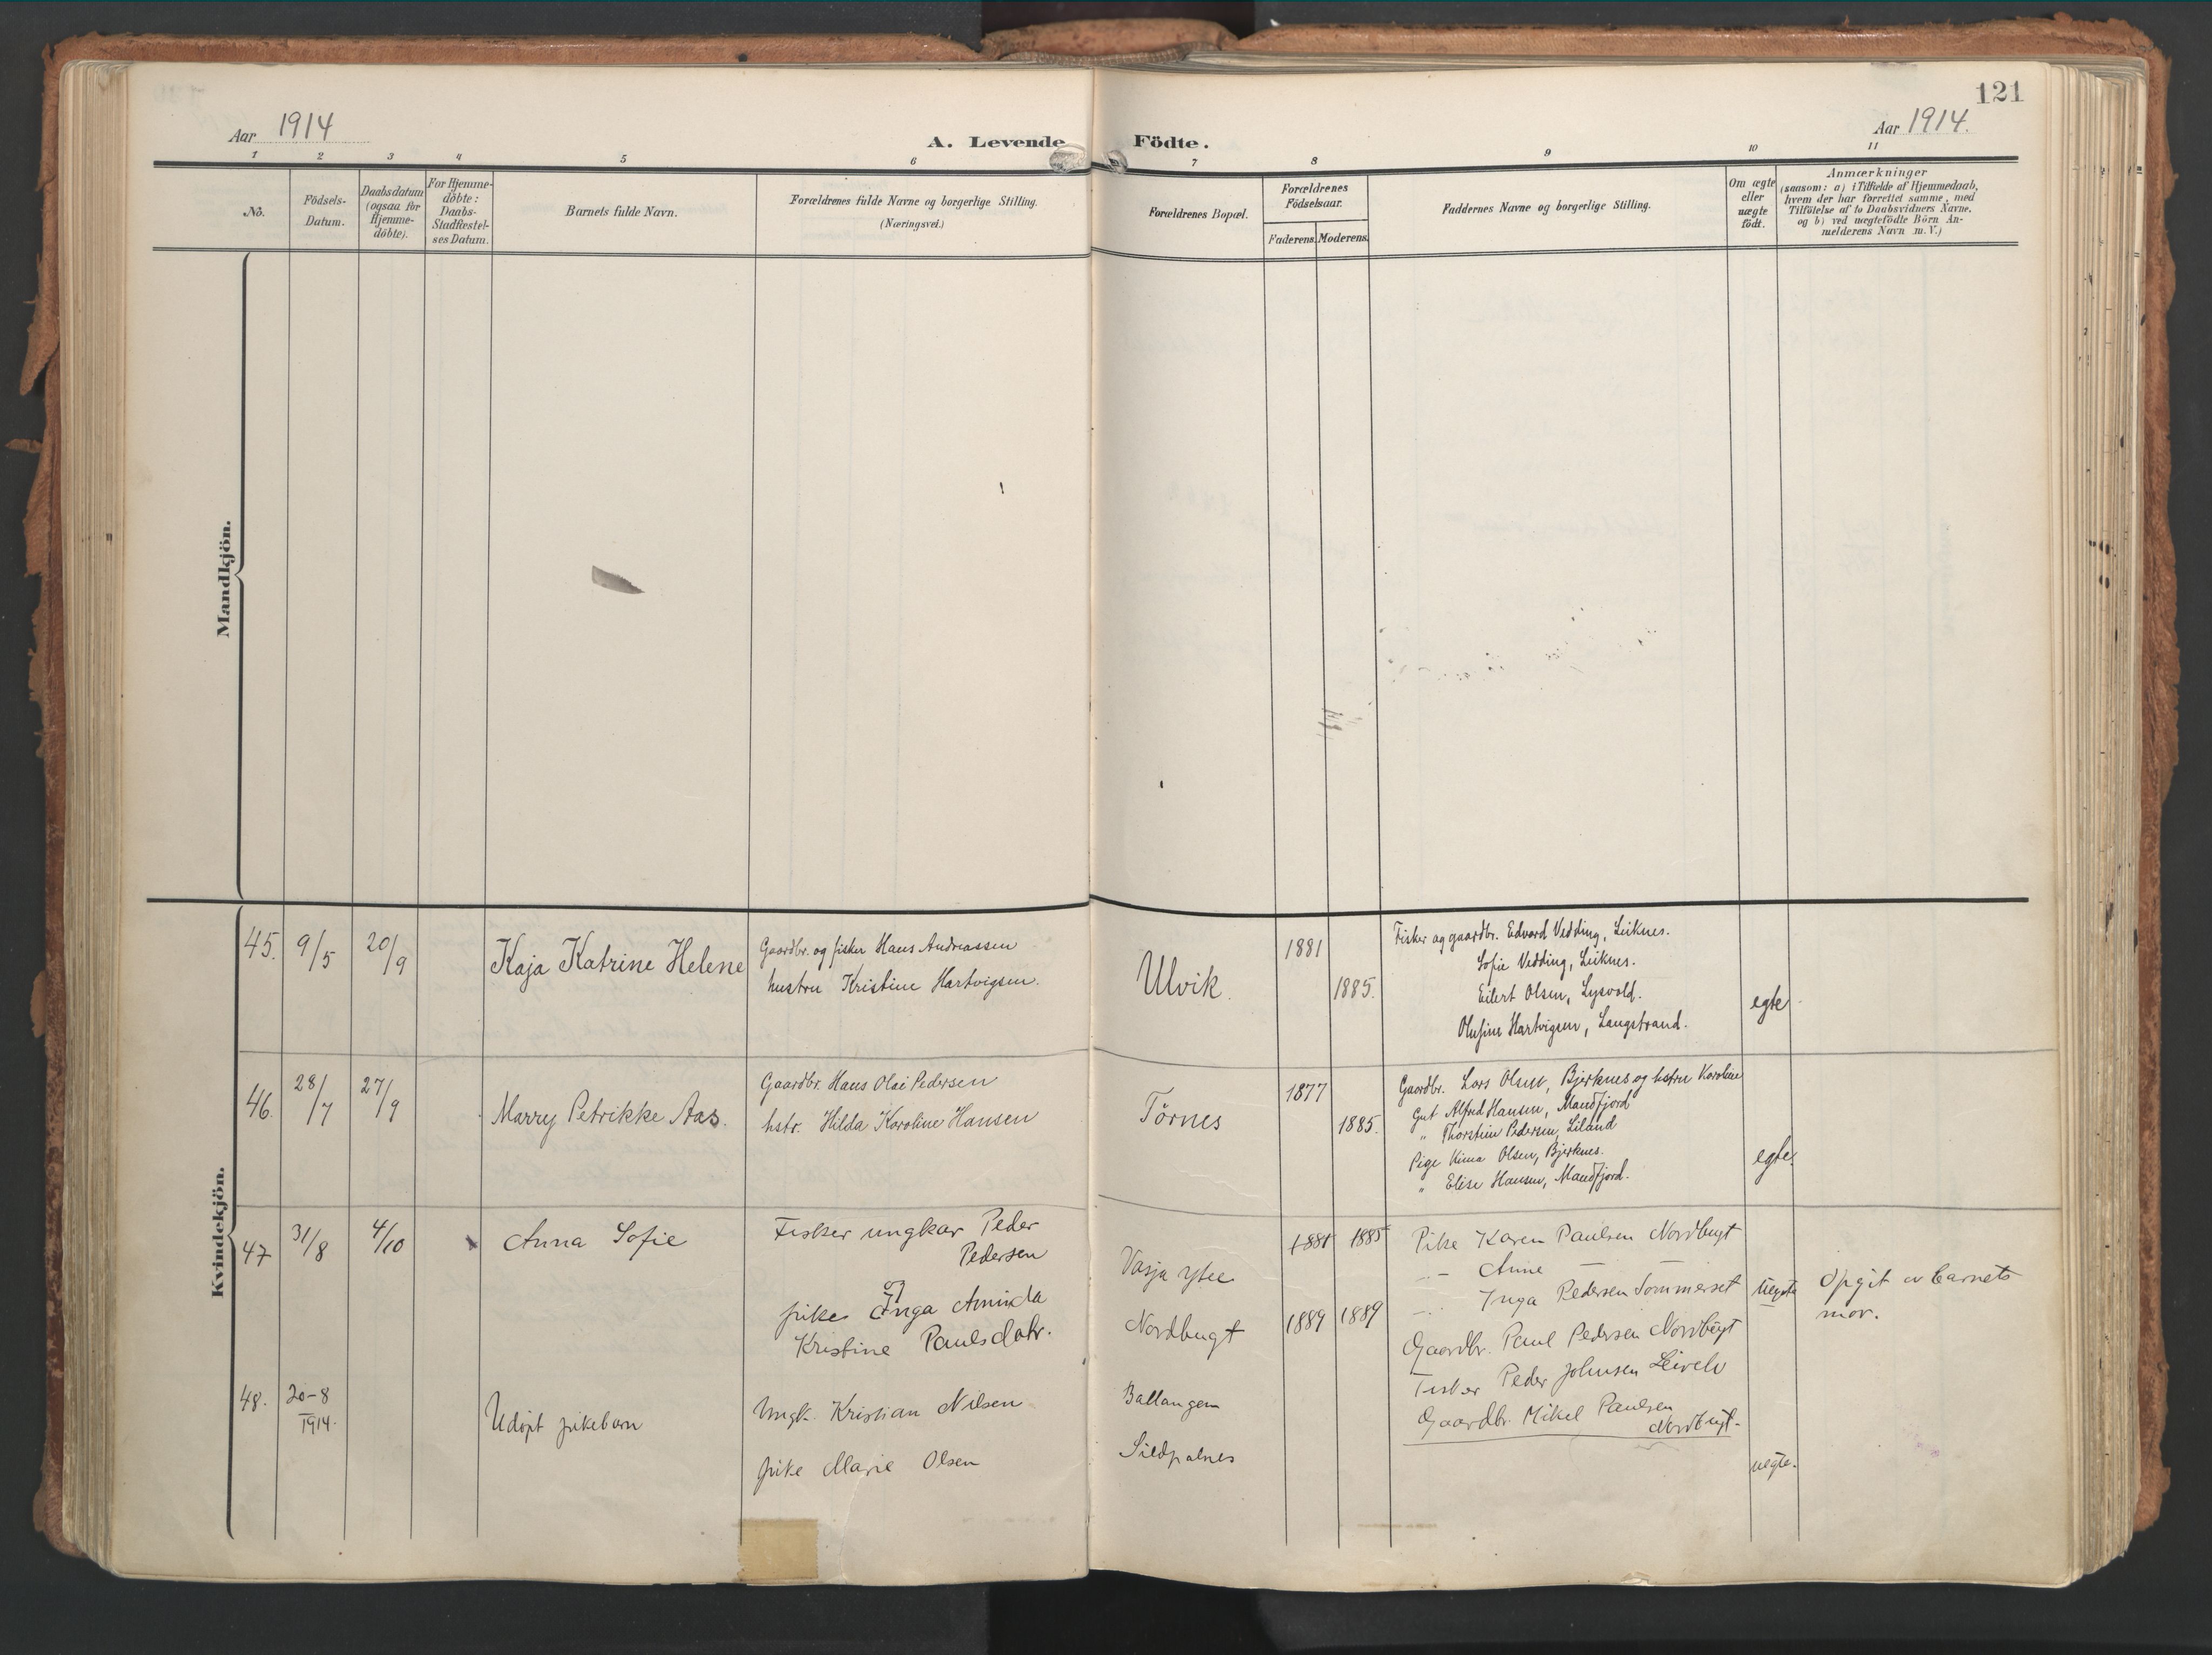 121
Aar 1914
A. Levende Födte.
Aar 1914.
1 2 3 4 5 6 7 8 9 10 11
No.
Födsels-
Datum.
Daabsdatum
(ogsaa for
Hjemme-
döbte).
For Hjemme-
döbte:
Daabs-
Stadfæstel-
ses Datum.
Barnets fulde Navn.
Forældrenes fulde Navne og borgerlige Stilling.
(Næringsvei.)
Forældrenes Bopæl.
Forældrenes
Födselsaar.
Faderens. Moderens.
Faddernes Navne og borgerlige Stilling.
Om ægte
eller
uægte
födt.
Anmærkninger
(saasom: a) i Tilfælde af Hjemmedaab,
hvem der har forrettet samme, med
Tilföielse af to Daabsvidners Navne.
og b) ved uægtefödte Börn An-
melderens Navn m. V.)
Mandkjön.
Kvindekjön.
45. 9/5 20/9
Kaja Katrine Helene
Gaardbr. og fisker Hans Andreassen
hustru Kristine Hartvigsen.
Ulvik.
1881
1885.
Fisker og gaardbr. Edvard Vedding, Leiknes.
Sofie Vedding, Leiknes.
Eilert Olsen, Lysvold.
Olufine Hartvigsen, Langstrand.
egte
46. 28/7 27/9
Marry Petrikke Aas.
Gaardbr. Hans Olai Pedersen
hstr. Hilda Karoline Hansen
Törnes
1877
1885.
Gaardbr. Lars Olsen, Bjerknes og hstru Karoline
Gut Alfred Hansen, Maudfjord
" Thorstein Pedersen, Liland
Pige Olsen, Bjerknes.
" Elise Hansen, Maudfjord.
egte.
47 31/8 4/10
Anna Sofie
Fisker ungkar Peder
Pedersen
og
pike Inga Aminda
Kristine Paulsdatr.
Vasja ytre
Nordbugt
1881 1885
1889 1889
Pike Karen Paulsen Nordbugt
-"- Anne —
-"- Inga Pedersen Sommerset
Gaardbr. Paul Pedersen Nordbugt
Fisker Peder Johnsen
Gaardbr. Mikel Paulsen
Nordbugt-
uegte
Opgit av barnets
mor.
48. 20-8
1914.
Udöpt pikebarn
Ungk. Kristian Nilsen
pike Marie Olsen
Ballangen
Sildpolnes
uegte.